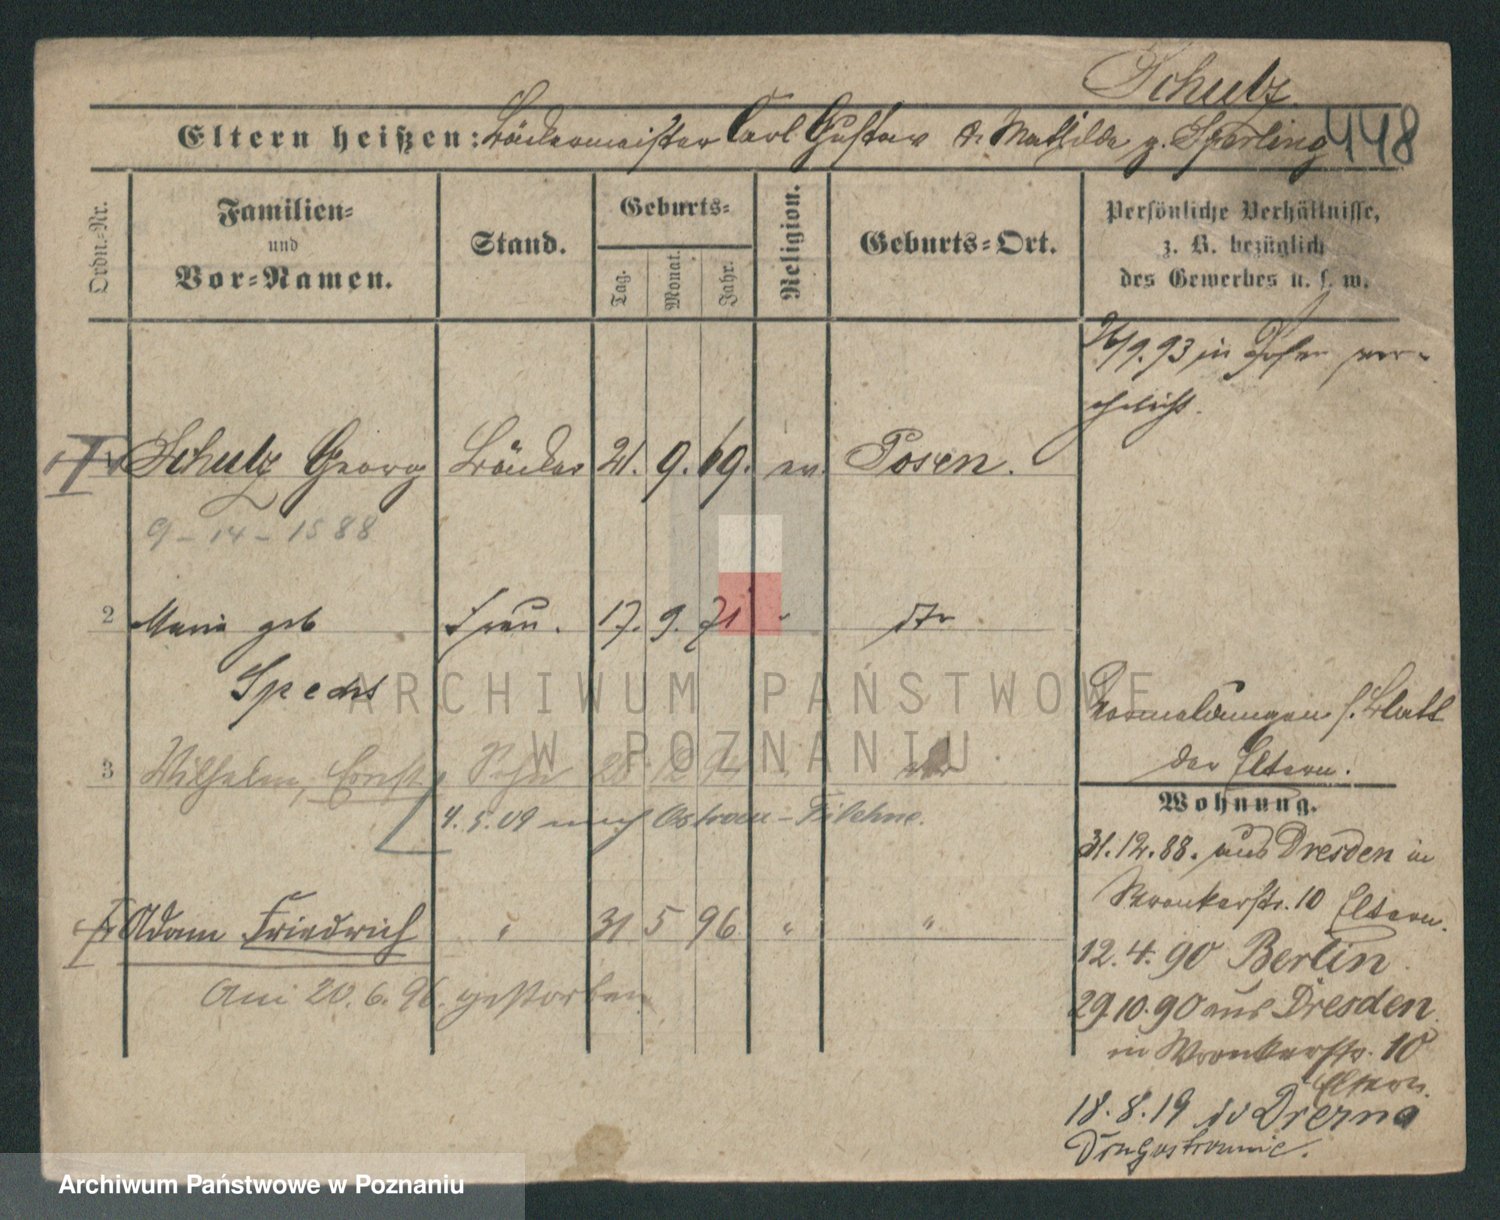 Schulz.
Eltern heißen: Bäckermeister Carl Gustav & Mathilde g. Sperling 448
Ordn.-Nr.
Familien- und Vor-Namen.
Stand.
Geburts-
Tag. Monat. Jahr.
Religion.
Geburts-Ort.
Persönliche Verhältnisse,
z. B. bezüglich
des Gewerbes u. s. w.
/9.93 in Posen ver-
ehelicht.
Schulz Georg Bäcker 21. 9. 69. ev. Posen.
9-14-1588
2 Maria geb Frau. 17. 9. 71 " dto
Specht
ARCHIWUM PAŃSTWOWE
W POZNANIU
Vormeldungen s. Blatt
der Eltern.
3 Wilhelm, Ernst, Sohn
4. 5. 09 nach Ostrau-Filehne.
Wohnung.
31.12.88. aus Dresden in
Wronkerstr. 10 Eltern.
Adam Friedrich " 31 5 96 " "
12.4.90 Berlin.
Am 20.6.96. gestorben
29.10.90 aus Dresden.
in Wronkerstr. 10
Eltern.
18.8.19
Archiwum Państwowe w Poznaniu